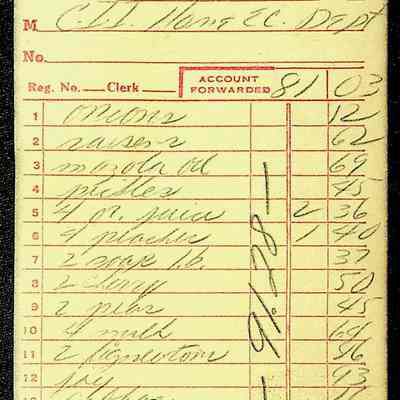 M C.I.I. Home Ec. Dept
No.
Reg. No. Clerk ACCOUNT FORWARDED 81 03
1 onions 12
2 raisens 62
3 mazola oil 69
4 pickles 45
5 4 or. juice 2 36
6 4 peaches 1 40
7 2 soap 37
8 2 cherry 50
9 2 peas 45
10 4 milk 64
11 2 96
12 joy 93
91.28